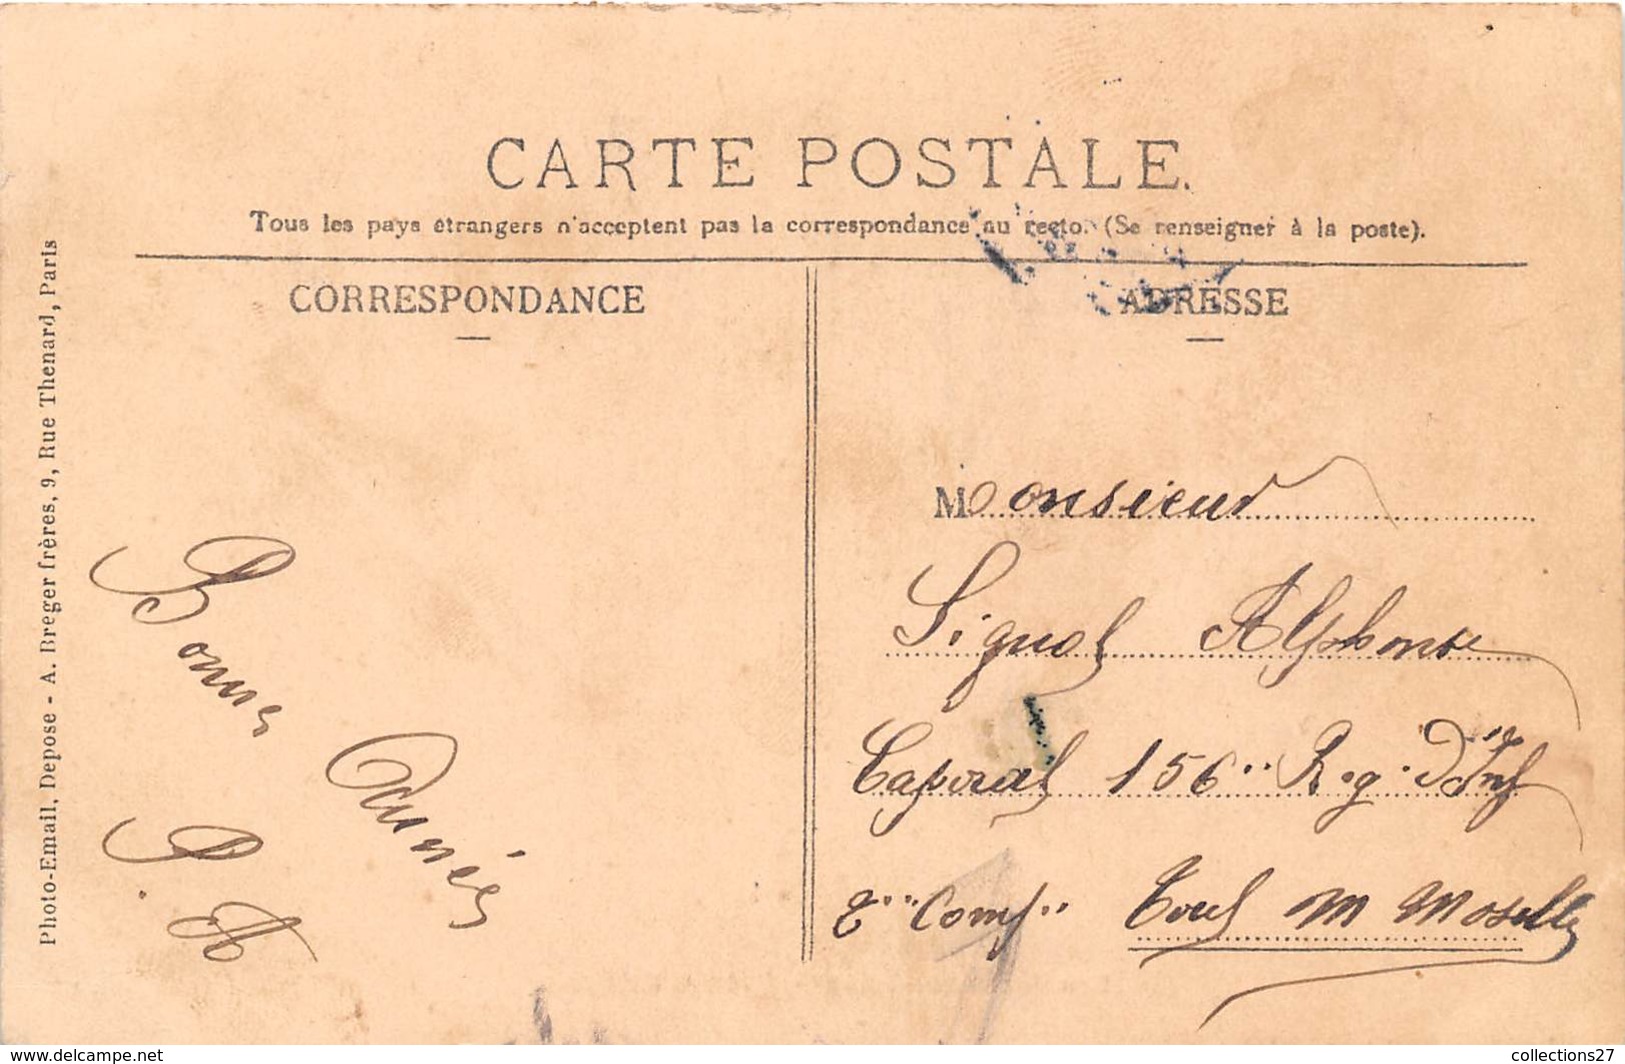 CARTE POSTALE.
Tous les pays étrangers n'acceptent pas la correspondance au recto. (Se renseigner à la poste).
CORRESPONDANCE
ADRESSE
Photo-Email, Depose - A. Breger frères, 9, Rue Thenard, Paris
Bonne
Année
P. A
Monsieur
Signol Alphonse
Caporal 156'' Reg. D'Inf
Comp'' Toul M Moselle
www.delcampe.net
collections27